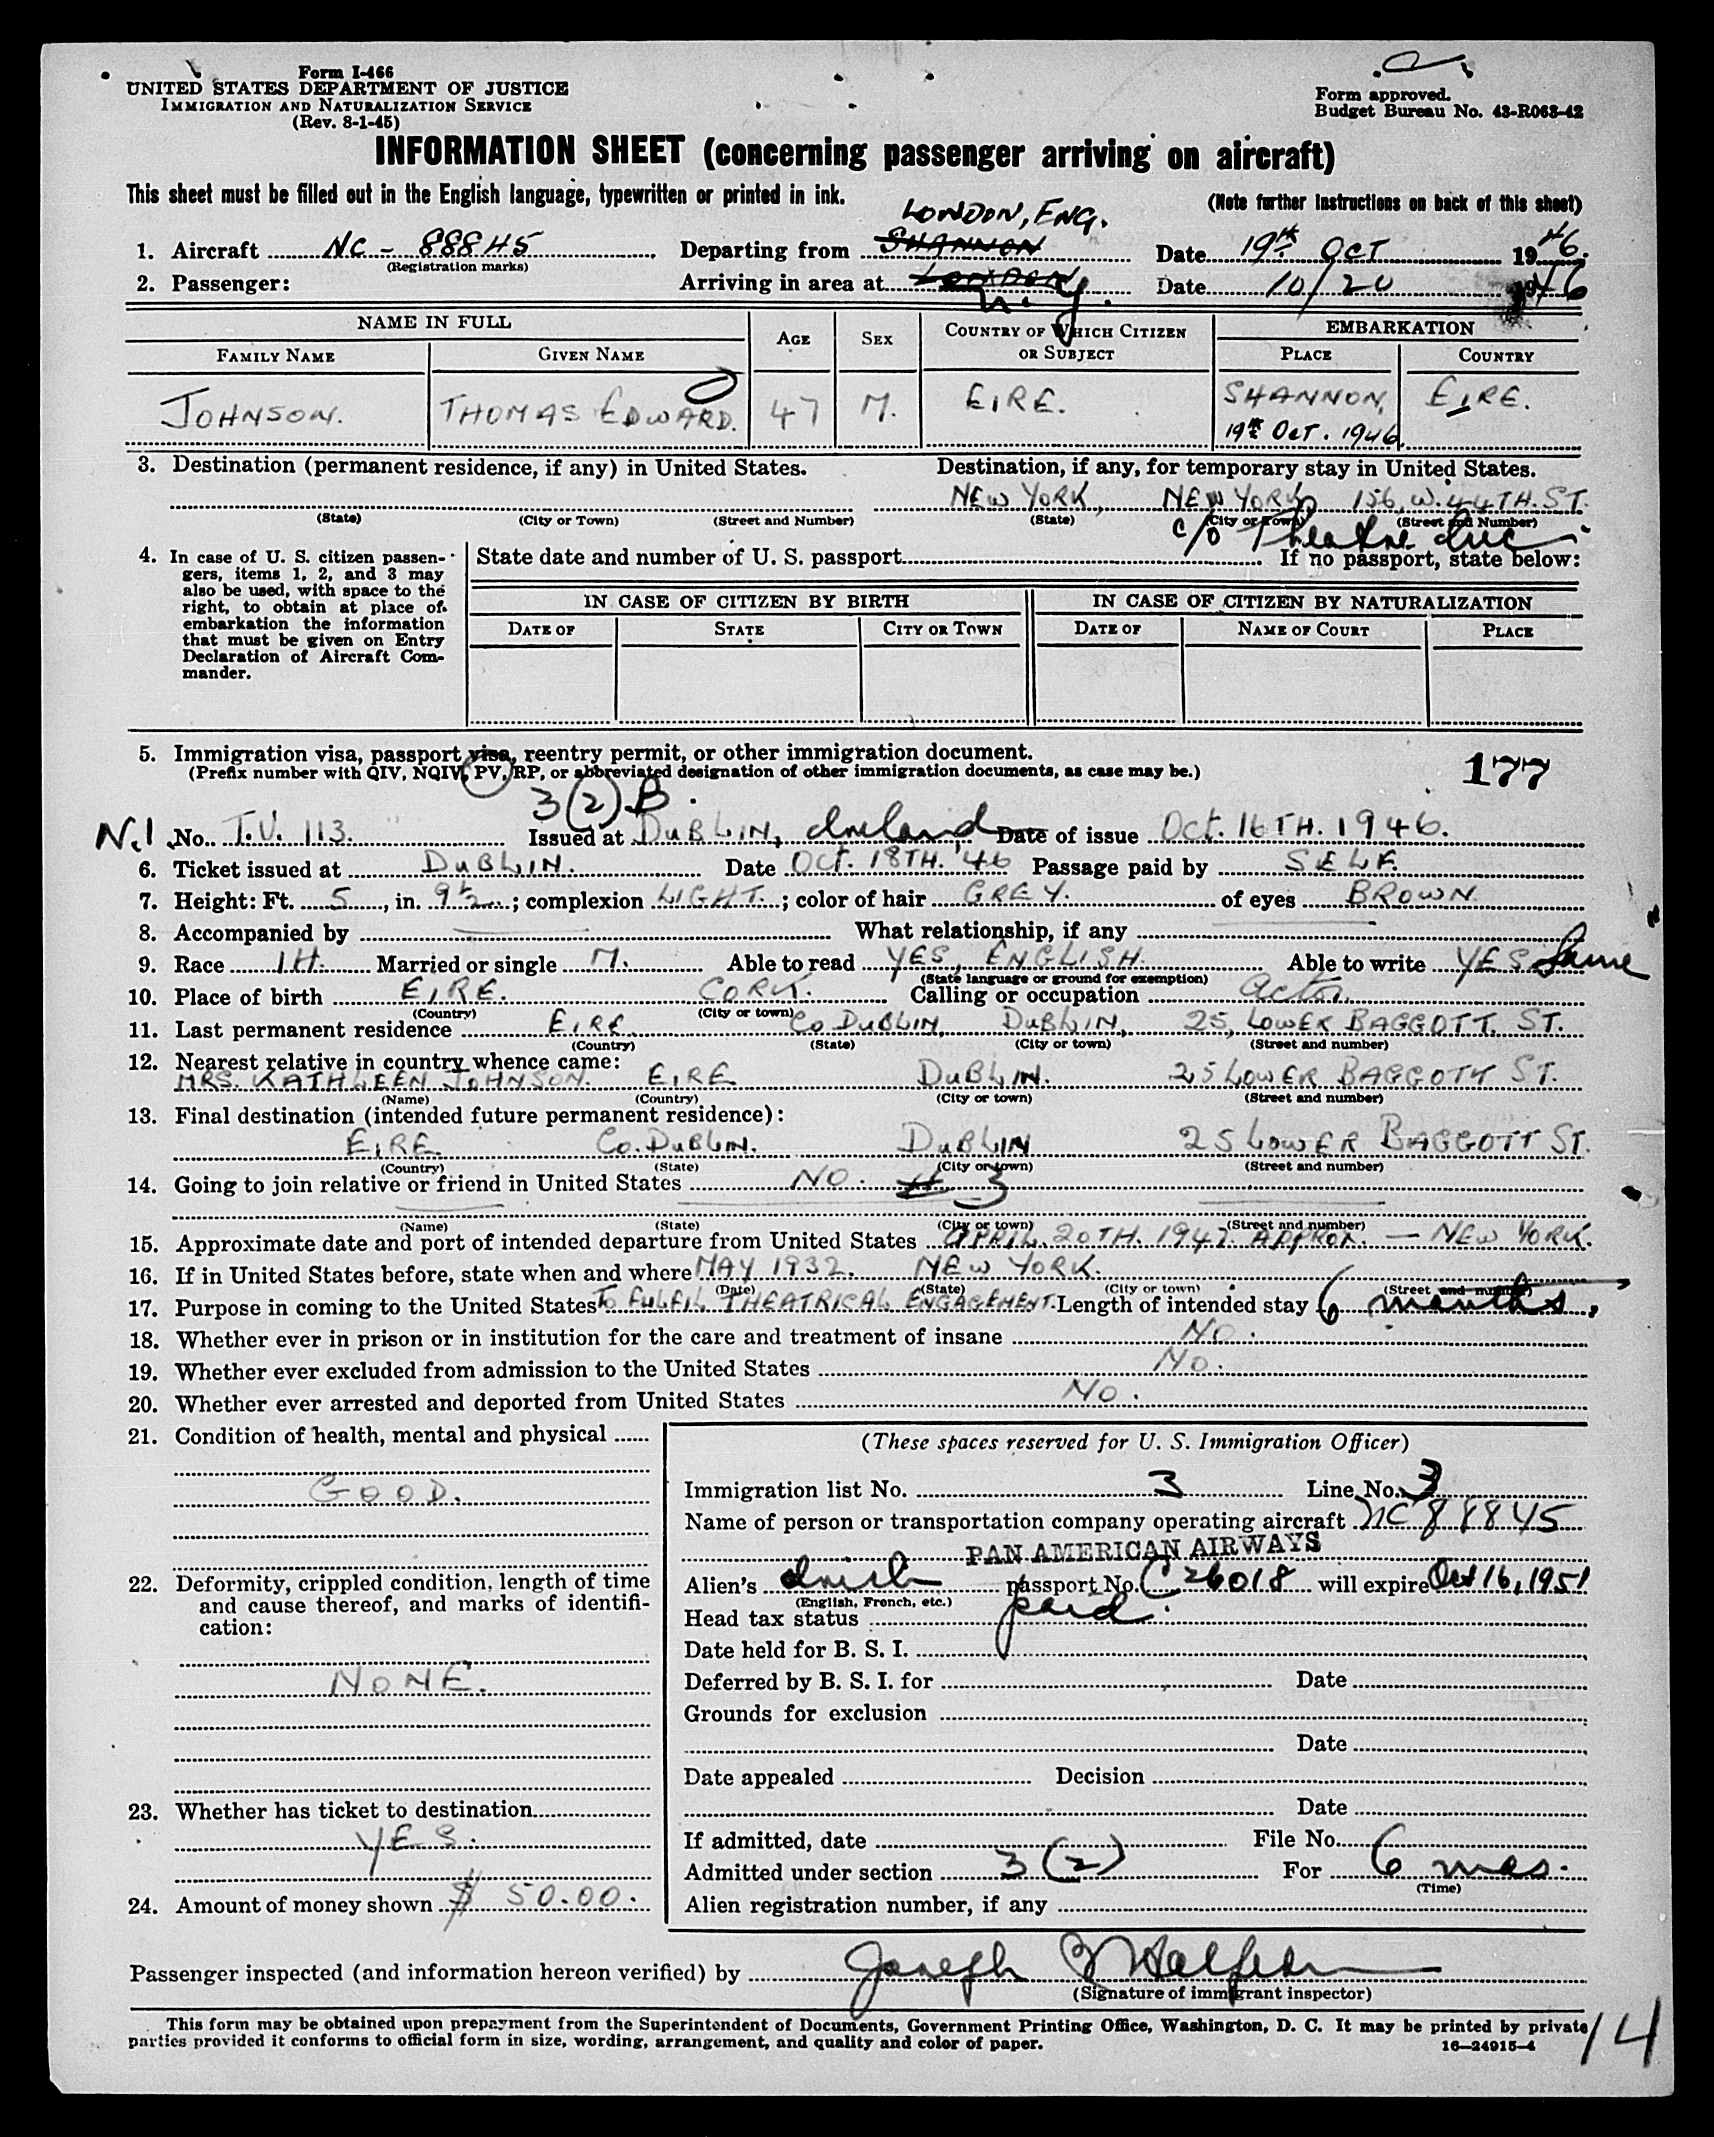 Form I-466
UNITED STATES DEPARTMENT OF JUSTICE
IMMIGRATION AND NATURALIZATION SERVICE
(Rev. 8-1-45)
Form approved.
Budget Bureau No. 43-R063-42
INFORMATION SHEET (concerning passenger arriving on aircraft)
This sheet must be filled out in the English language, typewritten or printed in ink.
(Note further instructions on back of this sheet)
LONDON, ENG.
1. Aircraft NC - 88845 Departing from SHANNON Date 19th OCT 1946.
(Registration marks)
2. Passenger: Arriving in area at LONDON N.Y. Date 10/20 1946
NAME IN FULL AGE SEX COUNTRY OF WHICH CITIZEN OR SUBJECT EMBARKATION
FAMILY NAME GIVEN NAME PLACE COUNTRY
JOHNSON. THOMAS EDWARD. 47 M. EIRE. SHANNON, EIRE.
19th OCT. 1946.
3. Destination (permanent residence, if any) in United States. Destination, if any, for temporary stay in United States.
NEW YORK, NEW YORK, 156, W. 44TH. ST.
(State) (City or Town) (Street and Number) (State) (City or Town) (Street and Number)
c/o Theatre Inc
4. In case of U. S. citizen passen-
gers, items 1, 2, and 3 may
also be used, with space to the
right, to obtain at place of
embarkation the information
that must be given on Entry
Declaration of Aircraft Com-
mander.
State date and number of U. S. passport If no passport, state below:
IN CASE OF CITIZEN BY BIRTH IN CASE OF CITIZEN BY NATURALIZATION
DATE OF STATE CITY OR TOWN DATE OF NAME OF COURT PLACE
5. Immigration visa, passport visa, reentry permit, or other immigration document.
(Prefix number with QIV, NQIV, PV, RP, or abbreviated designation of other immigration documents, as case may be.)
177
3(2)B.
N.I No. T.V. 113. Issued at DUBLIN, Ireland Date of issue Oct. 16TH. 1946.
6. Ticket issued at DUBLIN. Date Oct. 18TH. '46 Passage paid by SELF.
7. Height: Ft. 5, in. 9½; complexion LIGHT.; color of hair GREY. of eyes BROWN.
8. Accompanied by What relationship, if any
9. Race IH. Married or single M. Able to read YES, ENGLISH. Able to write YES Same
(State language or ground for exemption)
10. Place of birth EIRE. CORK. Calling or occupation Actor.
(Country) (City or town)
11. Last permanent residence EIRE. CO DUBLIN, DUBLIN, 25, LOWER BAGGOTT ST.
(Country) (State) (City or town) (Street and number)
12. Nearest relative in country whence came:
MRS. KATHLEEN JOHNSON. EIRE DUBLIN. 25 LOWER BAGGOTT ST.
(Name) (Country) (City or town) (Street and number)
13. Final destination (intended future permanent residence):
EIRE. CO. DUBLIN. DUBLIN 25 LOWER BAGGOTT ST.
(Country) (State) (City or town) (Street and number)
14. Going to join relative or friend in United States NO. # 3
(Name) (State) (City or town) (Street and number)
15. Approximate date and port of intended departure from United States APRIL 20TH. 1947. APPROX. — NEW YORK.
16. If in United States before, state when and where MAY 1932. NEW YORK.
(Date) (State) (City or town) (Street and number)
17. Purpose in coming to the United States TO FULFIL THEATRICAL ENGAGEMENT. Length of intended stay 6 months,
18. Whether ever in prison or in institution for the care and treatment of insane NO.
19. Whether ever excluded from admission to the United States NO.
20. Whether ever arrested and deported from United States NO.
21. Condition of health, mental and physical
GOOD.
22. Deformity, crippled condition, length of time
and cause thereof, and marks of identifi-
cation:
NONE.
23. Whether has ticket to destination
YES.
24. Amount of money shown $ 50.00.
(These spaces reserved for U. S. Immigration Officer)
Immigration list No. 3 Line No. 3
Name of person or transportation company operating aircraft NC 88845
PAN AMERICAN AIRWAYS
Alien's Irish passport No. C 26018 will expire Oct 16, 1951
(English, French, etc.)
Head tax status paid.
Date held for B. S. I.
Deferred by B. S. I. for Date
Grounds for exclusion
Date
Date appealed Decision
Date
If admitted, date File No.
Admitted under section 3(2) For 6 mos.
(Time)
Alien registration number, if any
Passenger inspected (and information hereon verified) by Joseph
(Signature of immigrant inspector)
This form may be obtained upon prepayment from the Superintendent of Documents, Government Printing Office, Washington, D. C. It may be printed by private
parties provided it conforms to official form in size, wording, arrangement, and quality and color of paper.
16—24915-4
14